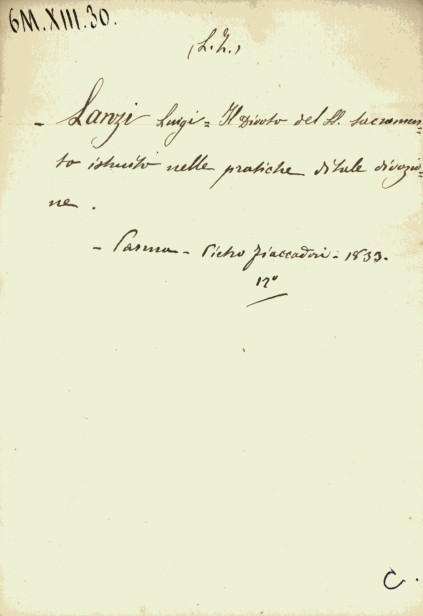 6M.XIII.30.
(L. Z.)
- Lanzi Luigi = Il Divoto del SS. Sacramen=
to istruito nelle pratiche di tale divozio=
ne.
- Parma - Pietro Fiaccadori - 1833.
12°
C.